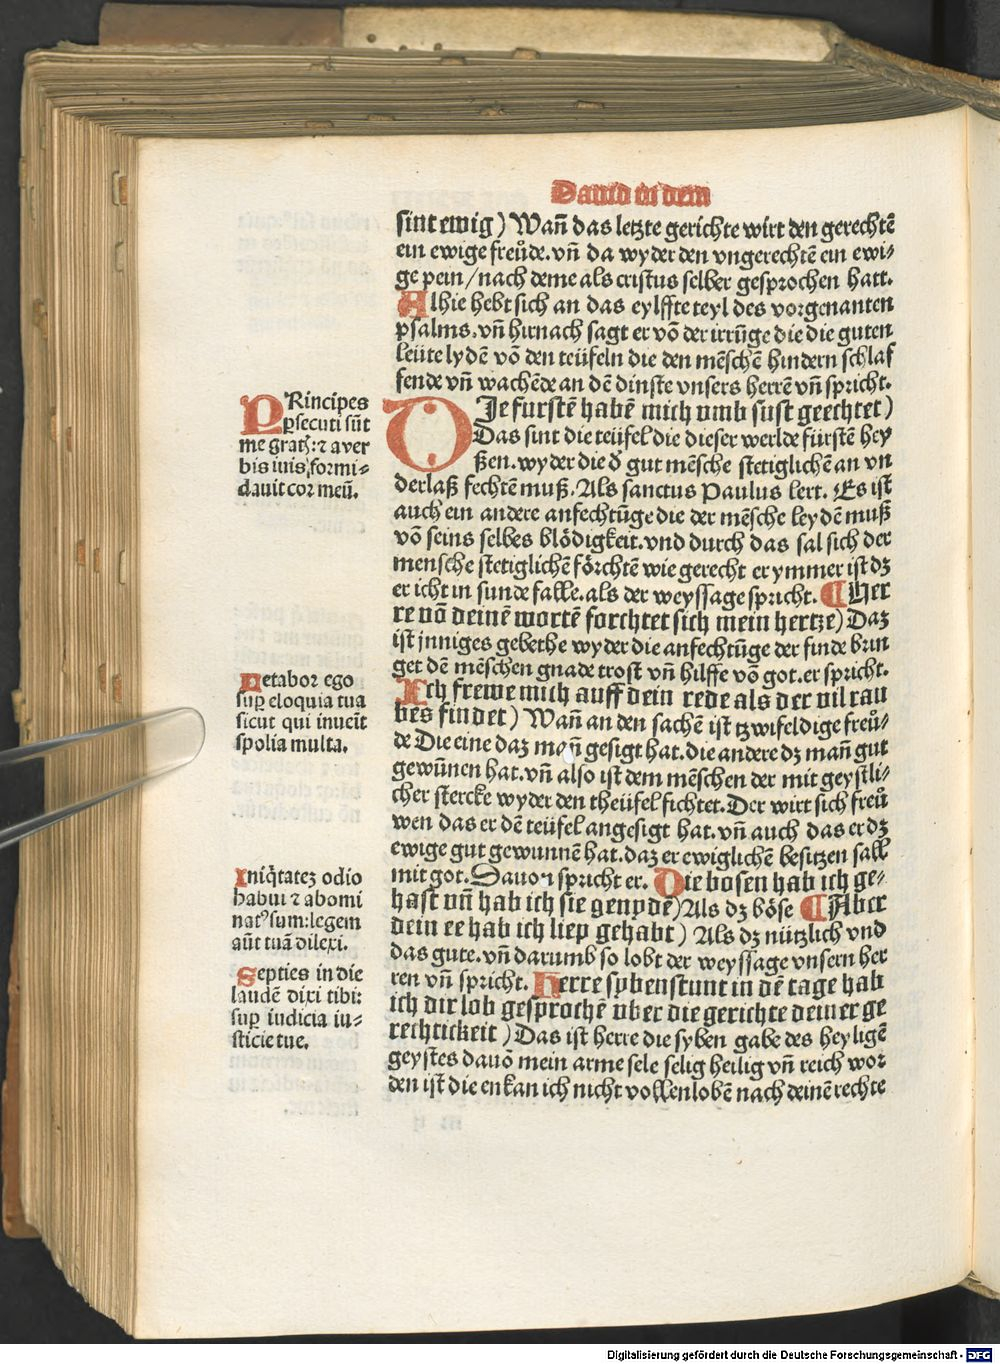 Dauid in dem
sint ewig) Wan̄ das letzte gerichte wirt den gerechtē
ein ewige freu̇de. vn̄ da wyder den vngerechtē ein ewi⸗
ge pein/nach deme als cristus selber gesprochen hatt.
Alhie hebt sich an das eylffte teyl des vorgenanten
psalms. vn̄ hirnach sagt er vō der irrūge die die guten
leüte lydē vō den teüfeln die den mēschē hindern schlaf
fende vn̄ wachēde an dē dinste vnsers herrē vn̄ spricht.
DJe furstē habē mich vmb sust geechtet)
Das sint die teüfel die dieser werlde fürstē hey
ßen. wyder die d̓ gut mēsche stetiglichē an vn
derlaß fechtē muß. Als sanctus Paulus lert. Es ist
auch ein andere anfechtūge die der mēsche leydē muß
vō seins selbes blödigkeit. vnd durch das sal sich der
mensche stetiglichē förchtē wie gerecht er ymmer ist dz
er icht in sunde falle. als der weyssage spricht. ¶ Her
re vō deinē wortē forchtet sich mein hertze) Daz
ist jnniges gebethe wyder die anfechtūge der finde brin
get dē mēschen gnade trost vn̄ hilffe vō got. er spricht.
Ich frewe mich auff dein rede als der vil rau
bes findet) Wan̄ an den sachē ist tzwifeldige freu̇⸗
de Die eine daz man̄ gesigt hat. die andere dz man̄ gut
gewūnen hat. vn̄ also ist dem mēschen der mit geystli⸗
cher stercke wyder den theüfel fichtet. Der wirt sich freu̇
wen das er dē teüfel angesigt hat. vn̄ auch das er dz
ewige gut gewunnē hat. daz er ewiglichē besitzen sall
mit got. Dauon spricht er. Die bosen hab ich ge⸗
hast vn̄ hab ich sie genydē) Als dz böse ¶ Aber
dein ee hab ich liep gehabt) Als dz nützlich vnd
das gute. vn̄ darumb so lobt der weyssage vnsern her
ren vn̄ spricht. Herre sybenstunt in dē tage hab
ich dir lob gesprochē über die gerichte deiner ge
rechtickeit) Das ist herre die syben gabe des heyligē
geystes dauō mein arme sele selig heilig vn̄ reich wor
den ist die enkan ich nicht vollenlobē nach deinē rechte
PRincipes
ꝑsecuti sūt
me gratꝭ: ⁊ a ver
bis tuis formi⸗
dauit cor meū.
Letabor ego
suꝑ eloquia tua
sicut qui inuēit
spolia multa.
Iniq̄tatez odio
habui ⁊ abomi
natꝰ sum: legem
aūt tuā dilexi.
Septies in die
laudē dixi tibi:
suꝑ iudicia iu⸗
sticie tue.
Digitalisierung gefördert durch die Deutsche Forschungsgemeinschaft - DFG